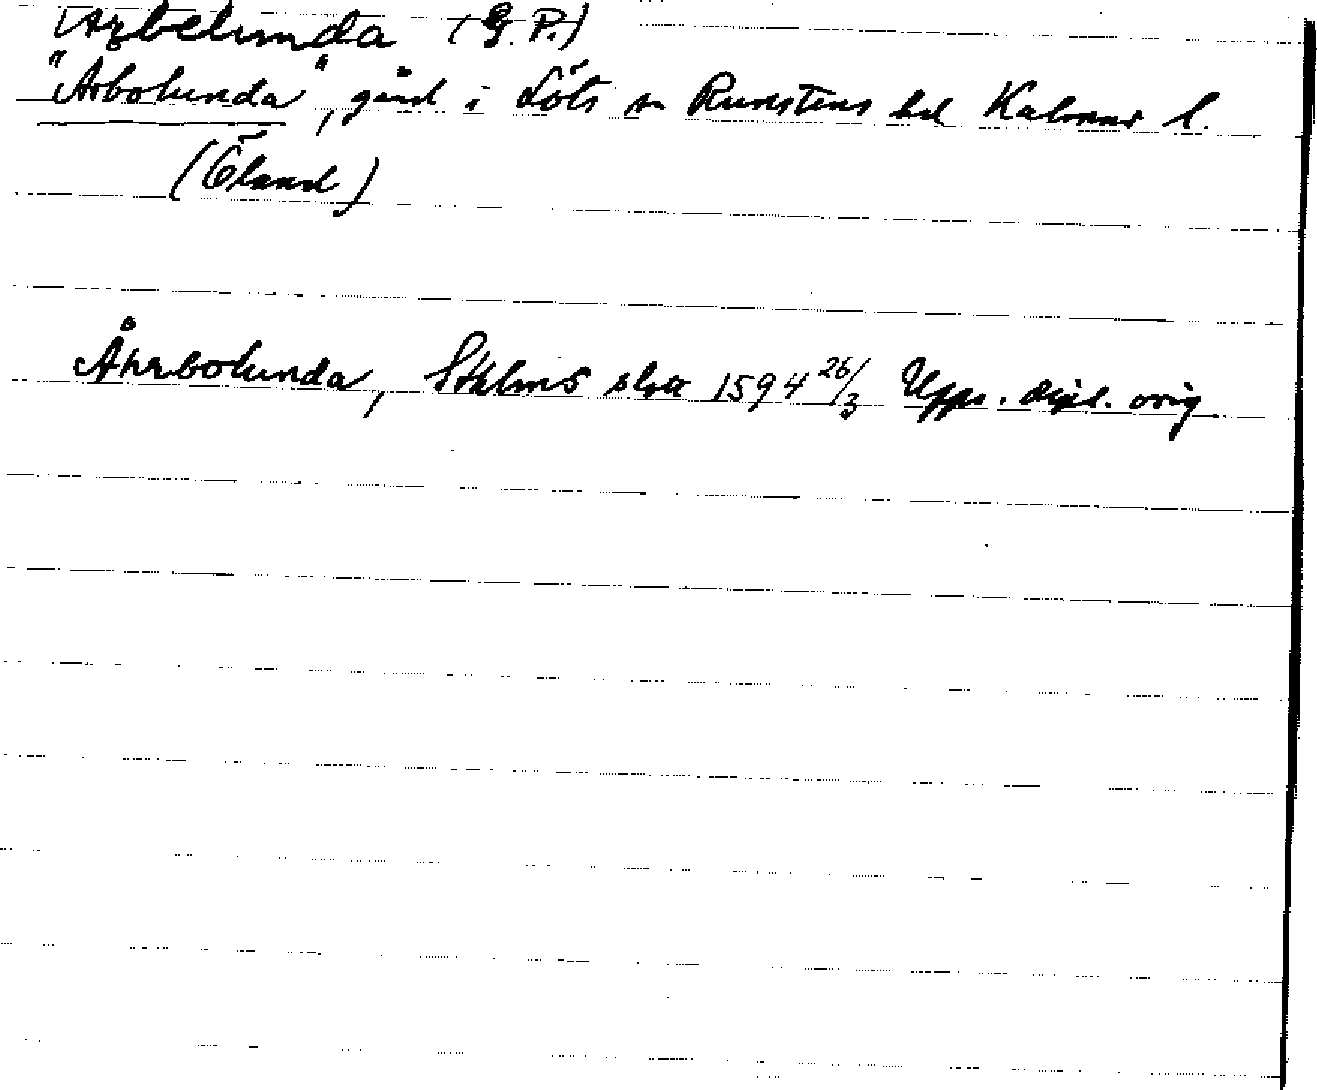 Arbelunda (G. P.)
"Arbolunda", gård i Löts sn Runstens hd Kalmar l.
(Öland)
Åhrbolunda, Sthlms slott 1594 26/3 Upps. dipl. orig